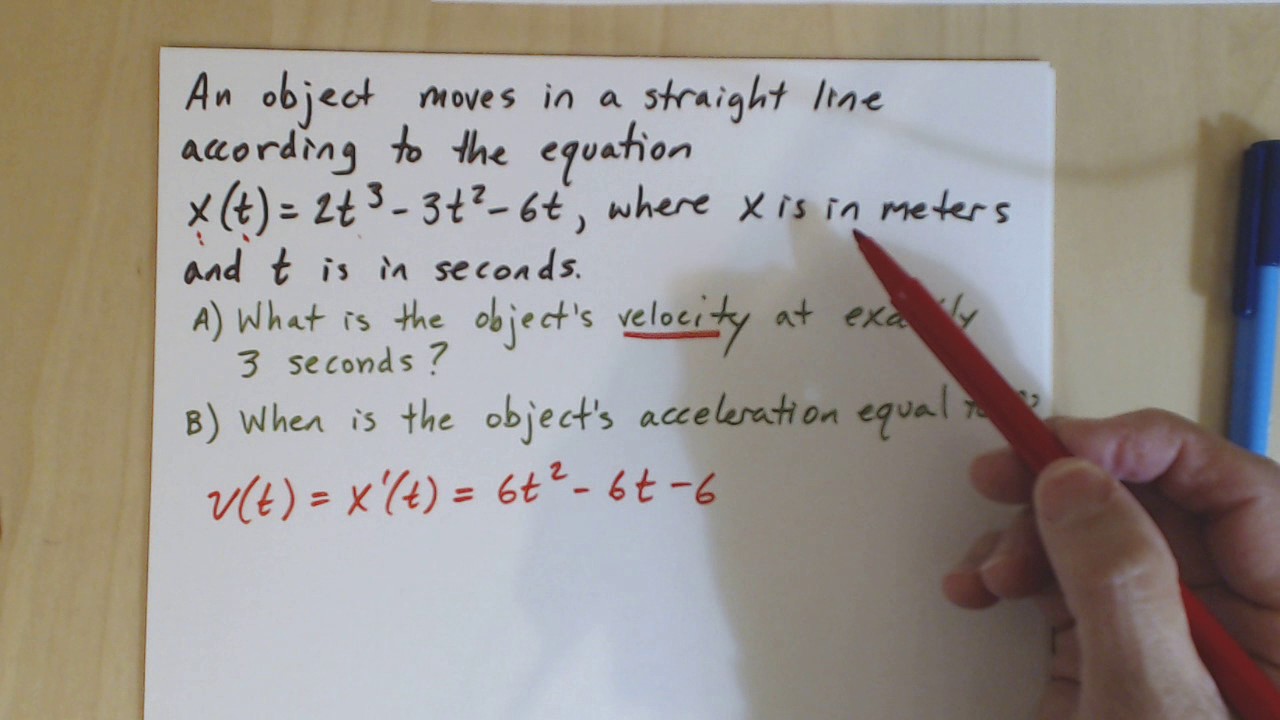 An object moves in a straight line
according to the equation
x(t) = 2t³ - 3t² - 6t, where x is in meters
and t is in seconds.
A) What is the object's velocity at
3 seconds?
B) When is the object's acceleration equal
v(t) = x'(t) = 6t² - 6t - 6